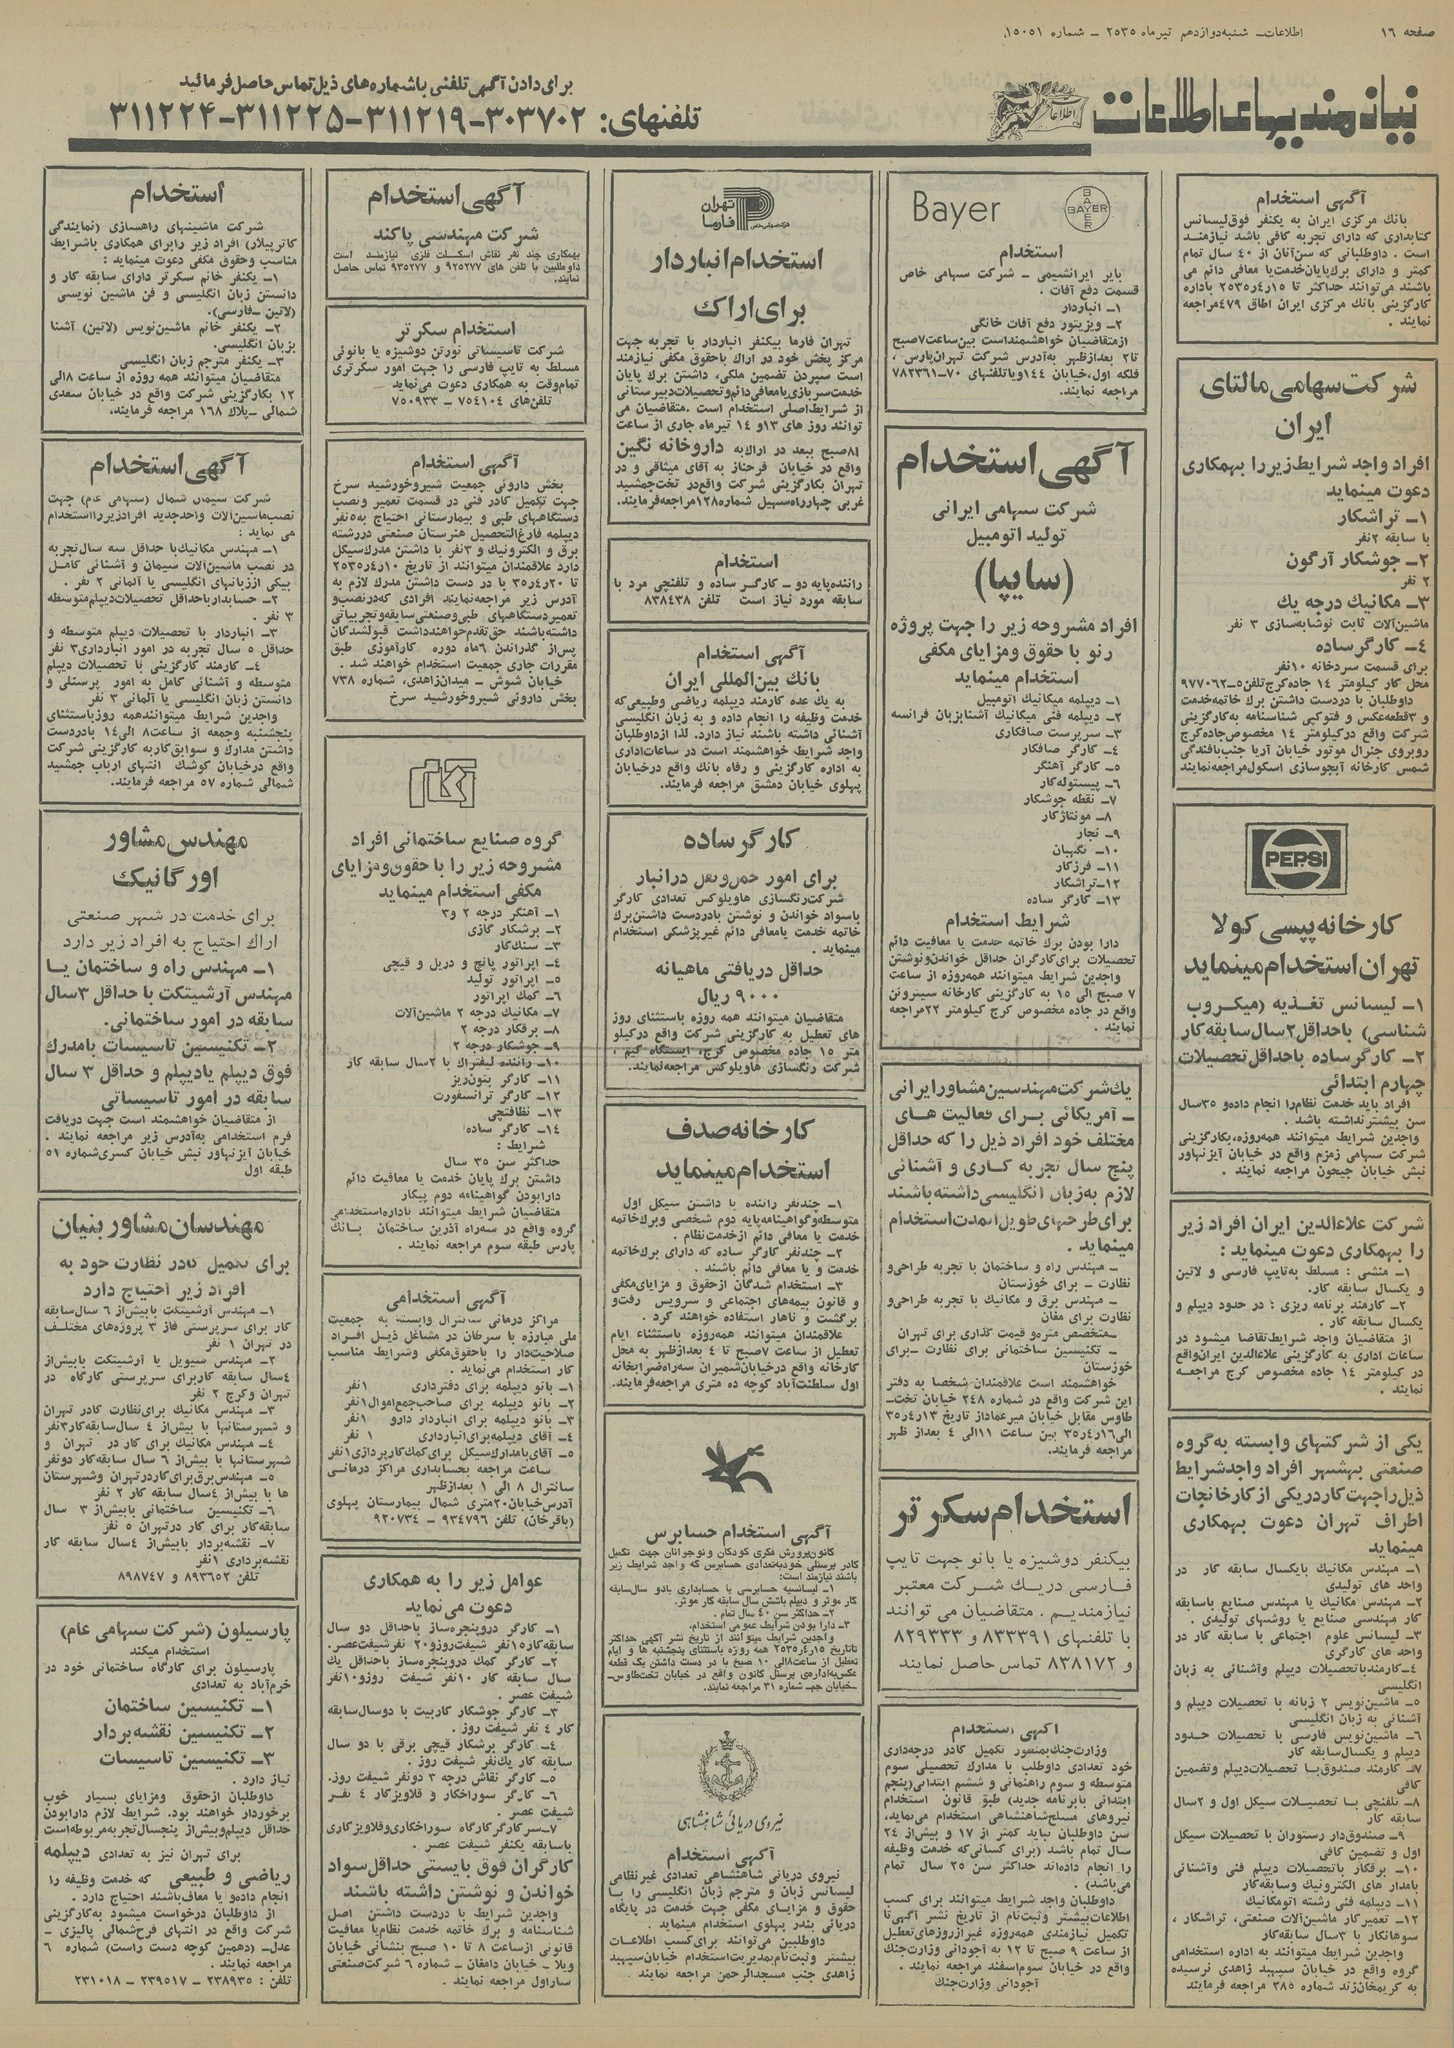 صفحه ۱۶
اطلاعات ــ شنبه دوازدهم تیرماه ۲۵۳۵ ــ شماره ۱۵۰۵۱
نیازمندیهای اطلاعات
برای دادن آگهی تلفنی باشماره‌های ذیل تماس حاصل فرمائید
تلفنهای: ۳۰۳۷۰۲-۳۱۱۲۱۹-۳۱۱۲۲۵-۳۱۱۲۲۴
آگهی استخدام
بانك مركزی ایران به یكنفر فوق‌لیسانس
كتابداری كه دارای تجربه كافی باشد نیازمند
است . داوطلبانی كه سن‌آنان از ۴۰ سال تمام
كمتر و دارای برك‌پایان‌خدمت‌یا معافی دائم می
باشند می‌توانند حداكثر تا ۲۵۳۵ر۴ر۱۵ باداره
كارگزینی بانك مركزی ایران اطاق ۴۷۹ مراجعه
نمایند .
شركت سهامی مالتای
ایران
افراد واجد شرایط زیر را بهمكاری
دعوت مینماید
۱ــ تراشكار
با سابقه ۲نفر
۲ــ جوشكار آرگون
۲ نفر
۳ــ مكانیك درجه یك
ماشین‌آلات ثابت نوشابه‌سازی ۳ نفر
۴ــ كارگر ساده
برای قسمت سردخانه ۱۰نفر
محل كار كیلومتر ۱۴ جاده‌كرج تلفن۵-۹۷۷۰۶۲
داوطلبان با دردست داشتن برك خاتمه‌خدمت
و ۳قطعه‌عكس و فتوكپی شناسنامه به‌كارگزینی
شركت واقع دركیلومتر ۱۴ مخصوص‌جاده‌كرج
روبروی جنرال موتور خیابان آریا جنب‌بافندگی
شمس كارخانه آبجوسازی اسكول‌مراجعه‌نمایند
PEPSI
كارخانه پپسی كولا
تهران استخدام مینماید
۱ــ لیسانس تغذیه (میكروب
شناسی) باحداقل۲سال‌سابقه‌كار
۲ــ كارگرساده باحداقل تحصیلات
چهارم ابتدائی
افراد باید خدمت نظام‌را انجام داده‌و ۳۵سال
سن بیشترنداشته باشد .
واجدین شرایط میتوانند همه‌روزه،بكارگزینی
شركت سهامی زمزم واقع در خیابان آیزنهاور
نبش خیابان جیحون مراجعه نمایند .
شركت علاءالدین ایران افراد زیر
را بهمكاری دعوت مینماید :
۱ــ منشی : مسلط به‌تایپ فارسی و لاتین
و یكسال سابقه كار.
۲ــ كارمند برنامه ریزی : در حدود دیپلم و
یكسال سابقه كار .
از متقاضیان واجد شرایط‌تقاضا میشود در
ساعات اداری به كارگزینی علاءالدین ایران‌واقع
در كیلومتر ۱۴ جاده مخصوص كرج مراجعه
نمایند .
یكی از شركتهای وابسته به‌گروه
صنعتی بهشهر افراد واجدشرایط
ذیل‌راجهت‌كاردریكی ازكارخانجات
اطراف تهران دعوت بهمكاری
مینماید
۱ــ مهندس مكانیك بایكسال سابقه كار در
واحد های تولیدی
۲ــ مهندس مكانیك یا مهندس صنایع باسابقه
كار مهندسی صنایع یا روشهای تولیدی .
۳ــ لیسانس علوم اجتماعی با سابقه كار در
واحد های كارگری
۴ــ كارمندباتحصیلات دیپلم وآشنائی به زبان
انگلیسی
۵ــ ماشین‌نویس ۲ زبانه با تحصیلات دیپلم و
آشنائی به زبان انگلیسی
۶ــ ماشین‌نویس فارسی با تحصیلات حدود
دیپلم و یكسال‌سابقه كار
۷ــ كارمند صندوق‌با تحصیلات‌دیپلم وتضمین
كافی
۸ــ تلفنچی با تحصیلات سیكل اول و ۲سال
سابقه كار
۹ــ صندوق‌دار رستوران با تحصیلات سیكل
اول و تضمین كافی
۱۰ــ برقكار باتحصیلات دیپلم فنی وآشنائی
بامدار های الكترونیك وسابقه‌كار
۱۱ــ دیپلمه فنی رشته اتومكانیك
۱۲ــ تعمیركار ماشین‌آلات صنعتی، تراشكار ،
سوهانكار با ۳سال سابقه‌كار
واجدین شرایط میتوانند به اداره استخدامی
گروه واقع در خیابان سپهبد زاهدی نرسیده
به كریمخان‌زند شماره ۲۸۵ مراجعه فرمایند
Bayer
BAYER
استخدام
بایر ایرانشیمی ــ شركت سهامی خاص
قسمت دفع آفات .
۱ــ انباردار
۲ــ ویزیتور دفع آفات خانگی
ازمتقاضیان خواهشمنداست بین‌ساعت۷صبح
تا۲ بعدازظهر به‌آدرس شركت تهران‌پارس ،
فلكه اول،خیابان ۱۴۴ ویاتلفنهای ۷۰-۷۸۲۳۶۱
مراجعه نمایند.
آگهی استخدام
شركت سهامی ایرانی
تولید اتومبیل
(سایپا)
افراد مشروحه زیر را جهت پروژه
رنو با حقوق ومزایای مكفی
استخدام مینماید
۱ــ دیپلمه میكانیك اتومبیل
۲ــ دیپلمه فنی میكانیك آشنابزبان فرانسه
۳ــ سرپرست صافكاری
۴ــ كارگر صافكار
۵ــ كارگر آهنگر
۶ــ پیستوله‌كار
۷ــ نقطه جوشكار
۸ــ مونتاژكار
۹ــ نجار
۱۰ــ نگهبان
۱۱ــ فرزكار
۱۲ــ تراشكار
۱۳ــ كارگر ساده
شرایط استخدام
دارا بودن برك خاتمه خدمت یا معافیت دائم
تحصیلات برای‌كارگران حداقل خواندن‌ونوشتن
واجدین شرایط میتوانند همه‌روزه از ساعت
۷ صبح الی ۱۵ به كارگزینی كارخانه سیتروئن
واقع در جاده مخصوص كرج كیلومتر ۲۲مراجعه
نمایند .
یك‌شركت مهندسین مشاور ایرانی
ــ آمریكائی برای فعالیت های
مختلف خود افراد ذیل را كه حداقل
پنج سال تجربه كاری و آشنائی
لازم به‌زبان انگلیسی داشته‌باشند
برای‌طرحهای‌طویل‌المدت‌استخدام
مینماید .
ــ مهندس راه و ساختمان با تجربه طراحی‌و
نظارت ــ برای خوزستان
ــ مهندس برق و مكانیك با تجربه طراحی‌و
نظارت برای مغان
ــ متخصص متره‌و قیمت گذاری برای تهران
ــ تكنیسین ساختمانی برای نظارت ــ برای
خوزستان
خواهشمند است علاقمندان شخصا به دفتر
این شركت واقع در شماره ۲۴۸ خیابان تخت‌ــ
طاوس مقابل خیابان میرعماداز تاریخ ۳۵ر۴ر۱۳
الی ۳۵ر۴ر۱۶ بین ساعت ۱۱الی ۴ بعداز ظهر
مراجعه فرمایند.
استخدام سكرتر
بیكنفر دوشیزه یا بانو جهت تایپ
فارسی دریك شركت معتبر
نیازمندیم . متقاضیان می توانند
با تلفنهای ۸۳۳۳۹۱ و ۸۲۹۳۳۳
و ۸۳۸۱۷۲ تماس حاصل نمایند
آگهی استخدام
وزارت‌جنك‌بمنظور تكمیل كادر درجه‌داری
خود تعدادی داوطلب با مدارك تحصیلی سوم
متوسطه و سوم راهنمائی و ششم ابتدائی(پنجم
ابتدائی بابرنامه جدید) طبق قانون استخدام
نیروهای مسلح‌شاهنشاهی استخدام می‌نماید،
سن داوطلبان نباید كمتر از ۱۷ و بیش‌از ۲۴
سال تمام باشد (برای كسانی‌كه خدمت وظیفه
را انجام داده‌اند حداكثر سن ۲۵ سال تمام
می‌باشد) .
داوطلبان واجد شرایط میتوانند برای كسب
اطلاعات‌بیشتر وثبت‌نام از تاریخ نشر آگهی‌تا
تكمیل نیازمندی همه‌روزه غیرازروزهای‌تعطیل
از ساعت ۹ صبح تا ۱۲ به آجودانی وزارت‌جنك
واقع در خیابان سوم‌اسفند مراجعه نمایند .
آجودانی وزارت‌جنك
تهران فارما
استخدام انباردار
برای اراك
تهران فارما بیكنفر انباردار با تجربه جهت
مركز پخش خود در اراك باحقوق مكفی نیازمند
است سپردن تضمین ملكی، داشتن برك پایان
خدمت‌سربازی‌یامعافی‌دائم‌وتحصیلات‌دبیرستانی
از شرایط‌اصلی استخدام است .متقاضیان می
توانند روز های ۱۳ و ۱۴ تیرماه جاری از ساعت
۸صبح ببعد در اراك‌به داروخانه نگین
واقع در خیابان فرحناز به آقای میثاقی و در
تهران بكارگزینی شركت واقع‌در تخت‌جمشید
غربی چهارراه‌سهیل شماره۱۲۸مراجعه‌فرمایند.
استخدام
راننده‌پایه دو ــ كارگر ساده و تلفنچی مرد با
سابقه مورد نیاز است تلفن ۸۳۸۴۳۸
آگهی استخدام
بانك بین‌المللی ایران
به یك عده كارمند دیپلمه ریاضی وطبیعی‌كه
خدمت وظیفه را انجام داده و به زبان انگلیسی
آشنائی داشته باشند نیاز دارد. لذا ازداوطلبان
واجد شرایط خواهشمند است در ساعات‌اداری
به اداره كارگزینی و رفاه بانك واقع درخیابان
پهلوی خیابان دمشق مراجعه فرمایند.
كارگر ساده
برای امور حمل‌ونقل درانبار
شركت‌رنگسازی هاویلوكس تعدادی كارگر
باسواد خواندن و نوشتن بادردست داشتن‌برك
خاتمه خدمت یامعافی دائم غیرپزشكی استخدام
مینماید.
حداقل دریافتی ماهیانه
۹۰۰۰ ریال
متقاضیان میتوانند همه روزه باستثنای روز
های تعطیل به كارگزینی شركت واقع دركیلو
متر ۱۵ جاده مخصوص كرج، ایستگاه گیم ،
شركت رنگسازی هاویلوكس مراجعه‌نمایند.
كارخانه صدف
استخدام مینماید
۱ــ چندنفر راننده با داشتن سیكل اول
متوسطه‌وگواهینامه‌پایه دوم شخصی وبرك‌خاتمه
خدمت یا معافی دائم ازخدمت‌نظام .
۲ــ چندنفر كارگر ساده كه دارای برك‌خاتمه
خدمت و یا معافی دائم باشند .
۳ــ استخدام شدگان ازحقوق و مزایای‌مكفی
و قانون بیمه‌های اجتماعی و سرویس رفت‌و
برگشت و ناهار استفاده خواهند كرد .
علاقمندان میتوانند همه‌روزه باستثناء ایام
تعطیل از ساعت ۷صبح تا ۴ بعدازظهر به محل
كارخانه واقع درخیابان‌شمیران سه‌راه‌ضرابخانه
اول سلطنت‌آباد كوچه ده متری مراجعه‌فرمایند.
آگهی استخدام حسابرس
كانون‌پرورش فكری كودكان و نوجوانان جهت تكمیل
كادر پرسنلی خودبه‌تعدادی حسابرس كه واجد شرایط زیر
باشند نیازمند است:
۱ــ لیسانسیه حسابرسی یا حسابداری بادو سال‌سابقه
كار موثر و دیپلم باشش سال سابقه كار موثر.
۲ــ حداكثر سن ۴۰ سال تمام .
۳ــ دارا بودن شرایط عمومی استخدام.
واجدین شرایط میتوانند از تاریخ نشر آگهی حداكثر
تاتاریخ ۲۵۳۵ر۴ر۱۵ همه روزه باستثنای پنجشنبه ها و ایام
تعطیل از ساعت۸الی ۱۰ صبح با در دست داشتن یك قطعه
عكس‌به‌اداره‌ی پرسنل كانون واقع در خیابان تخت‌طاوس‌ــ
ــ خیابان جم ــ شماره ۳۱ مراجعه نمایند.
نیروی دریائی شاهنشاهی
آگهی استخدام
نیروی دریائی شاهنشاهی تعدادی غیرنظامی
لیسانس زبان و مترجم زبان انگلیسی را با
حقوق و مزایای مكفی جهت خدمت در پایگاه
دریائی بندر پهلوی استخدام مینماید .
داوطلبین می‌توانند برای‌كسب اطلاعات
بیشتر وثبت‌نام‌بمدیریت‌استخدام خیابان‌سپهبد
زاهدی جنب مسجدالرحمن مراجعه نمایند .
آگهی استخدام
شركت مهندسی پاكند
بهمكاری چند نفر نقاش اسكلت فلزی نیازمند است
داوطلبین با تلفن های ۹۲۵۲۷۷ و ۹۳۵۲۷۷ تماس حاصل
نمایند.
استخدام سكرتر
شركت تاسیساتی نورتن دوشیزه یا بانوئی
مسلط به تایپ فارسی را جهت امور سكرتری
تمام‌وقت به همكاری دعوت می‌نماید
تلفن‌های ۷۵۴۱۰۴ ــ ۷۵۰۹۳۳
آگهی استخدام
بخش داروئی جمعیت شیروخورشید سرخ
جهت تكمیل كادر فنی در قسمت تعمیر ونصب
دستگاههای طبی و بیمارستانی احتیاج به‌۵نفر
دیپلمه فارغ‌التحصیل هنرستان صنعتی دررشته
برق و الكترونیك و ۳نفر با داشتن مدرك‌سیكل
دارد علاقمندان میتوانند از تاریخ ۲۵۳۵ر۴ر۱۰
تا ۳۵ر۴ر۲۰ با در دست داشتن مدرك لازم به
آدرس زیر مراجعه‌نمایند افرادی كه‌درنصب‌و
تعمیردستگاههای طبی‌وصنعتی‌سابقه‌وتجربیاتی
داشته‌باشند حق‌تقدم‌خواهندداشت قبولشدگان
پس‌از گذراندن ۶ماه دوره كارآموزی طبق
مقررات جاری جمعیت استخدام خواهند شد .
خیابان شوش ــ میدان‌زاهدی، شماره ۷۳۸
بخش داروئی شیروخورشید سرخ
گروه صنایع ساختمانی افراد
مشروحه زیر را با حقوق‌ومزایای
مكفی استخدام مینماید
۱ــ آهنگر درجه ۲ و۳
۲ــ برشكار گازی
۳ــ سنك‌كار
۴ــ اپراتور پانچ و دریل و قیچی
۵ــ اپراتور تولید
۶ــ كمك اپراتور
۷ــ مكانیك درجه ۲ ماشین‌آلات
۸ــ برقكار درجه ۲
۹ــ جوشكار درجه ۲
۱۰ــ راننده لیفتراك با ۲سال سابقه كار
۱۱ــ كارگر بتون‌ریز
۱۲ــ كارگر ترانسفورت
۱۳ــ نظافتچی
۱۴ــ كارگر ساده
شرایط :
حداكثر سن ۳۵ سال
داشتن برك پایان خدمت یا معافیت دائم
دارابودن گواهینامه دوم پیكار
متقاضیان شرایط میتوانند باداره‌استخدامی
گروه واقع در سه‌راه آذرین ساختمان بانك
پارس طبقه سوم مراجعه نمایند .
آگهی استخدامی
مراكز درمانی سانترال وابسته به جمعیت
ملی مبارزه با سرطان در مشاغل ذیل افراد
صلاحیت‌دار را باحقوق‌مكفی وشرایط مناسب
كار استخدام می‌نماید.
۱ــ بانو دیپلمه برای دفترداری ۱نفر
۲ــ بانو دیپلمه برای صاحب‌جمع‌اموال۱نفر
۳ــ بانو دیپلمه برای انباردار دارو ۱نفر
۴ــ آقای دیپلمه‌برای‌انبارداری ۱ نفر
۵ــ آقای‌بامدارك‌سیكل برای‌كمك‌كارپردازی۱نفر
ساعت مراجعه بحسابداری مراكز درمانی
سانترال ۸ الی ۱ بعدازظهر
آدرس‌خیابان۲۰متری شمال بیمارستان پهلوی
(باقرخان) تلفن ۹۳۴۷۹۶ ــ ۹۲۰۷۳۴
عوامل زیر را به همكاری
دعوت می‌نماید
۱ــ كارگر دروپنجره‌ساز باحداقل دو سال
سابقه‌كار۱۵نفر شیفت‌روزو۲۰ نفرشیفت‌عصر.
۲ــ كارگر كمك دروپنجره‌ساز باحداقل یك
سال سابقه كار ۱۰نفر شیفت روزو۱۰نفر
شیفت عصر .
۳ــ كارگر جوشكار كاربیت با دوسال‌سابقه
كار ۴ نفر شیفت روز .
۴ــ كارگر برشكار قیچی برقی با دو سال
سابقه كار یك‌نفر شیفت روز .
۵ــ كارگر نقاش درجه ۳ دونفر شیفت روز.
۶ــ كارگر سوراخكار و قلاویزكار ۴ نفر
شیفت عصر .
۷ــ سركارگركارگاه سوراخكاری‌وقلاویزكاری
باسابقه یكنفر شیفت عصر .
كارگران فوق بایستی حداقل‌سواد
خواندن و نوشتن داشته باشند
واجدین شرایط با دردست داشتن اصل
شناسنامه و برك خاتمه خدمت نظام‌یا معافیت
قانونی ازساعت ۸ تا ۱۰ صبح بنشانی خیابان
ویلا ــ خیابان دامغان ــ شماره ۶ شركت‌صنعتی
ساراول مراجعه نمایند .
استخدام
شركت ماشینهای راهسازی (نمایندگی
كاترپیلار) افراد زیر رابرای همكاری باشرایط
مناسب وحقوق مكفی دعوت مینماید :
۱ــ یكنفر خانم سكرتر دارای سابقه كار و
دانستن زبان انگلیسی و فن ماشین نویسی
(لاتین ــ فارسی).
۲ــ یكنفر خانم ماشین‌نویس (لاتین) آشنا
بزبان انگلیسی.
۳ــ یكنفر مترجم زبان انگلیسی
متقاضیان میتوانند همه روزه از ساعت ۸الی
۱۲ بكارگزینی شركت واقع در خیابان سعدی
شمالی ــ پلاك ۱۶۸ مراجعه فرمایند.
آگهی استخدام
شركت سیمان شمال (سهامی عام) جهت
نصب‌ماسین‌آلات واحدجدید افرادزیررااستخدام
می نماید :
۱ــ مهندس مكانیك‌با حداقل سه سال‌تجربه
در نصب ماشین‌آلات سیمان و آشنائی كامل
بیكی اززبانهای انگلیسی یا آلمانی ۲ نفر .
۲ــ حسابدارباحداقل تحصیلات‌دیپلم‌متوسطه
۳ نفر .
۳ــ انباردار با تحصیلات دیپلم متوسطه و
حداقل ۵ سال تجربه در امور انبارداری۲نفر
۴ــ كارمند كارگزینی با تحصیلات دیپلم
متوسطه و آشنائی كامل به امور پرسنلی و
دانستن زبان انگلیسی یا آلمانی ۳ نفر
واجدین شرایط میتوانندهمه روزباستثنای
پنجشنبه وجمعه از ساعت۸ الی۱۴ بادردست
داشتن مدارك و سوابق‌كاربه كارگزینی شركت
واقع درخیابان كوشك انتهای ارباب جمشید
شمالی شماره ۵۷ مراجعه فرمایند.
مهندس مشاور
اورگانیك
برای خدمت در شهر صنعتی
اراك احتیاج به افراد زیر دارد
۱ــ مهندس راه و ساختمان یا
مهندس آرشیتكت با حداقل ۳سال
سابقه در امور ساختمانی.
۲ــ تكنیسین تاسیسات بامدرك
فوق دیپلم یادیپلم و حداقل ۳ سال
سابقه در امور تاسیساتی
از متقاضیان خواهشمند است جهت دریافت
فرم استخدامی به‌آدرس زیر مراجعه نمایند .
خیابان آیزنهاور نبش خیابان كسری‌شماره ۵۱
طبقه اول
مهندسان مشاور بنیان
برای تكمیل كادر نظارت خود به
افراد زیر احتیاج دارد
۱ــ مهندس آرشیتكت بابیش‌از ۶ سال‌سابقه
كار برای سرپرستی فاز ۳ پروژه‌های مختلف
در تهران ۱ نفر
۲ــ مهندس سیویل یا آرشیتكت بابیش‌از
۴سال سابقه كاربرای سرپرستی كارگاه در
تهران وكرج ۲ نفر
۳ــ مهندس مكانیك برای‌نظارت كادر تهران
و شهرستانها با بیش‌از ۴ سال‌سابقه‌كار۳نفر
۴ــ مهندس مكانیك برای كار در تهران و
شهرستانها با بیش‌از ۶ سال سابقه‌كار دونفر
۵ــ مهندس‌برق برای‌كاردرتهران وشهرستان
ها با بیش‌از ۴سال سابقه‌كار ۲ نفر
۶ــ تكنیسین ساختمانی بابیش‌از ۳ سال
سابقه‌كار برای كار درتهران ۵ نفر
۷ــ نقشه‌بردار بابیش‌از ۴سال سابقه كار
نقشه‌برداری ۱نفر
تلفن ۸۹۳۶۵۲ و ۸۹۸۷۴۷
پارسیلون (شركت سهامی عام)
استخدام میكند
پارسیلون برای كارگاه ساختمانی خود در
خرم‌آباد به تعدادی
۱ــ تكنیسین ساختمان
۲ــ تكنیسین نقشه‌بردار
۳ــ تكنیسین تاسیسات
نیاز دارد .
داوطلبان ازحقوق ومزایای بسیار خوب
برخوردار خواهند بود. شرایط لازم دارابودن
حداقل دیپلم‌وبیش‌از پنجسال‌تجربه‌مربوطه‌است
برای تهران نیز به تعدادی دیپلمه
ریاضی و طبیعی كه خدمت وظیفه را
انجام داده‌و یا معاف‌باشند احتیاج دارد .
از داوطلبان درخواست میشود به‌كارگزینی
شركت واقع در انتهای فرح‌شمالی پالیزی ــ
عدل ــ (دهمین كوچه دست راست) شماره ۶
مراجعه نمایند .
تلفن : ۲۳۸۹۳۵ ــ ۲۳۹۰۱۷ ــ ۲۳۱۰۱۸